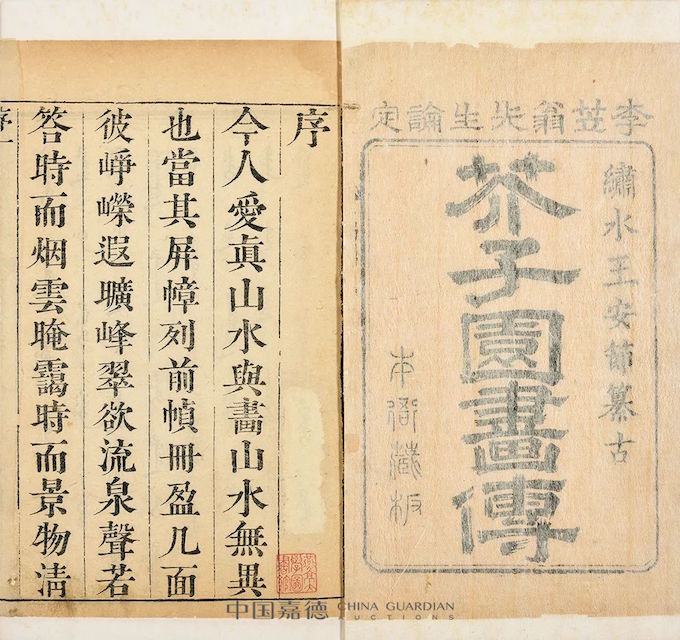 李笠翁先生論定
繡水王安節摹古
芥子園畫傳
本衙藏板
序
今人愛眞山水與畫山水無異
也當其屏幛列前幀冊盈几面
彼崢嶸遐曠峰翠欲流泉聲若
答時而烟雲晻靄時而景物清
序一
中国嘉德 CHINA GUARDIAN
AUCTIONS